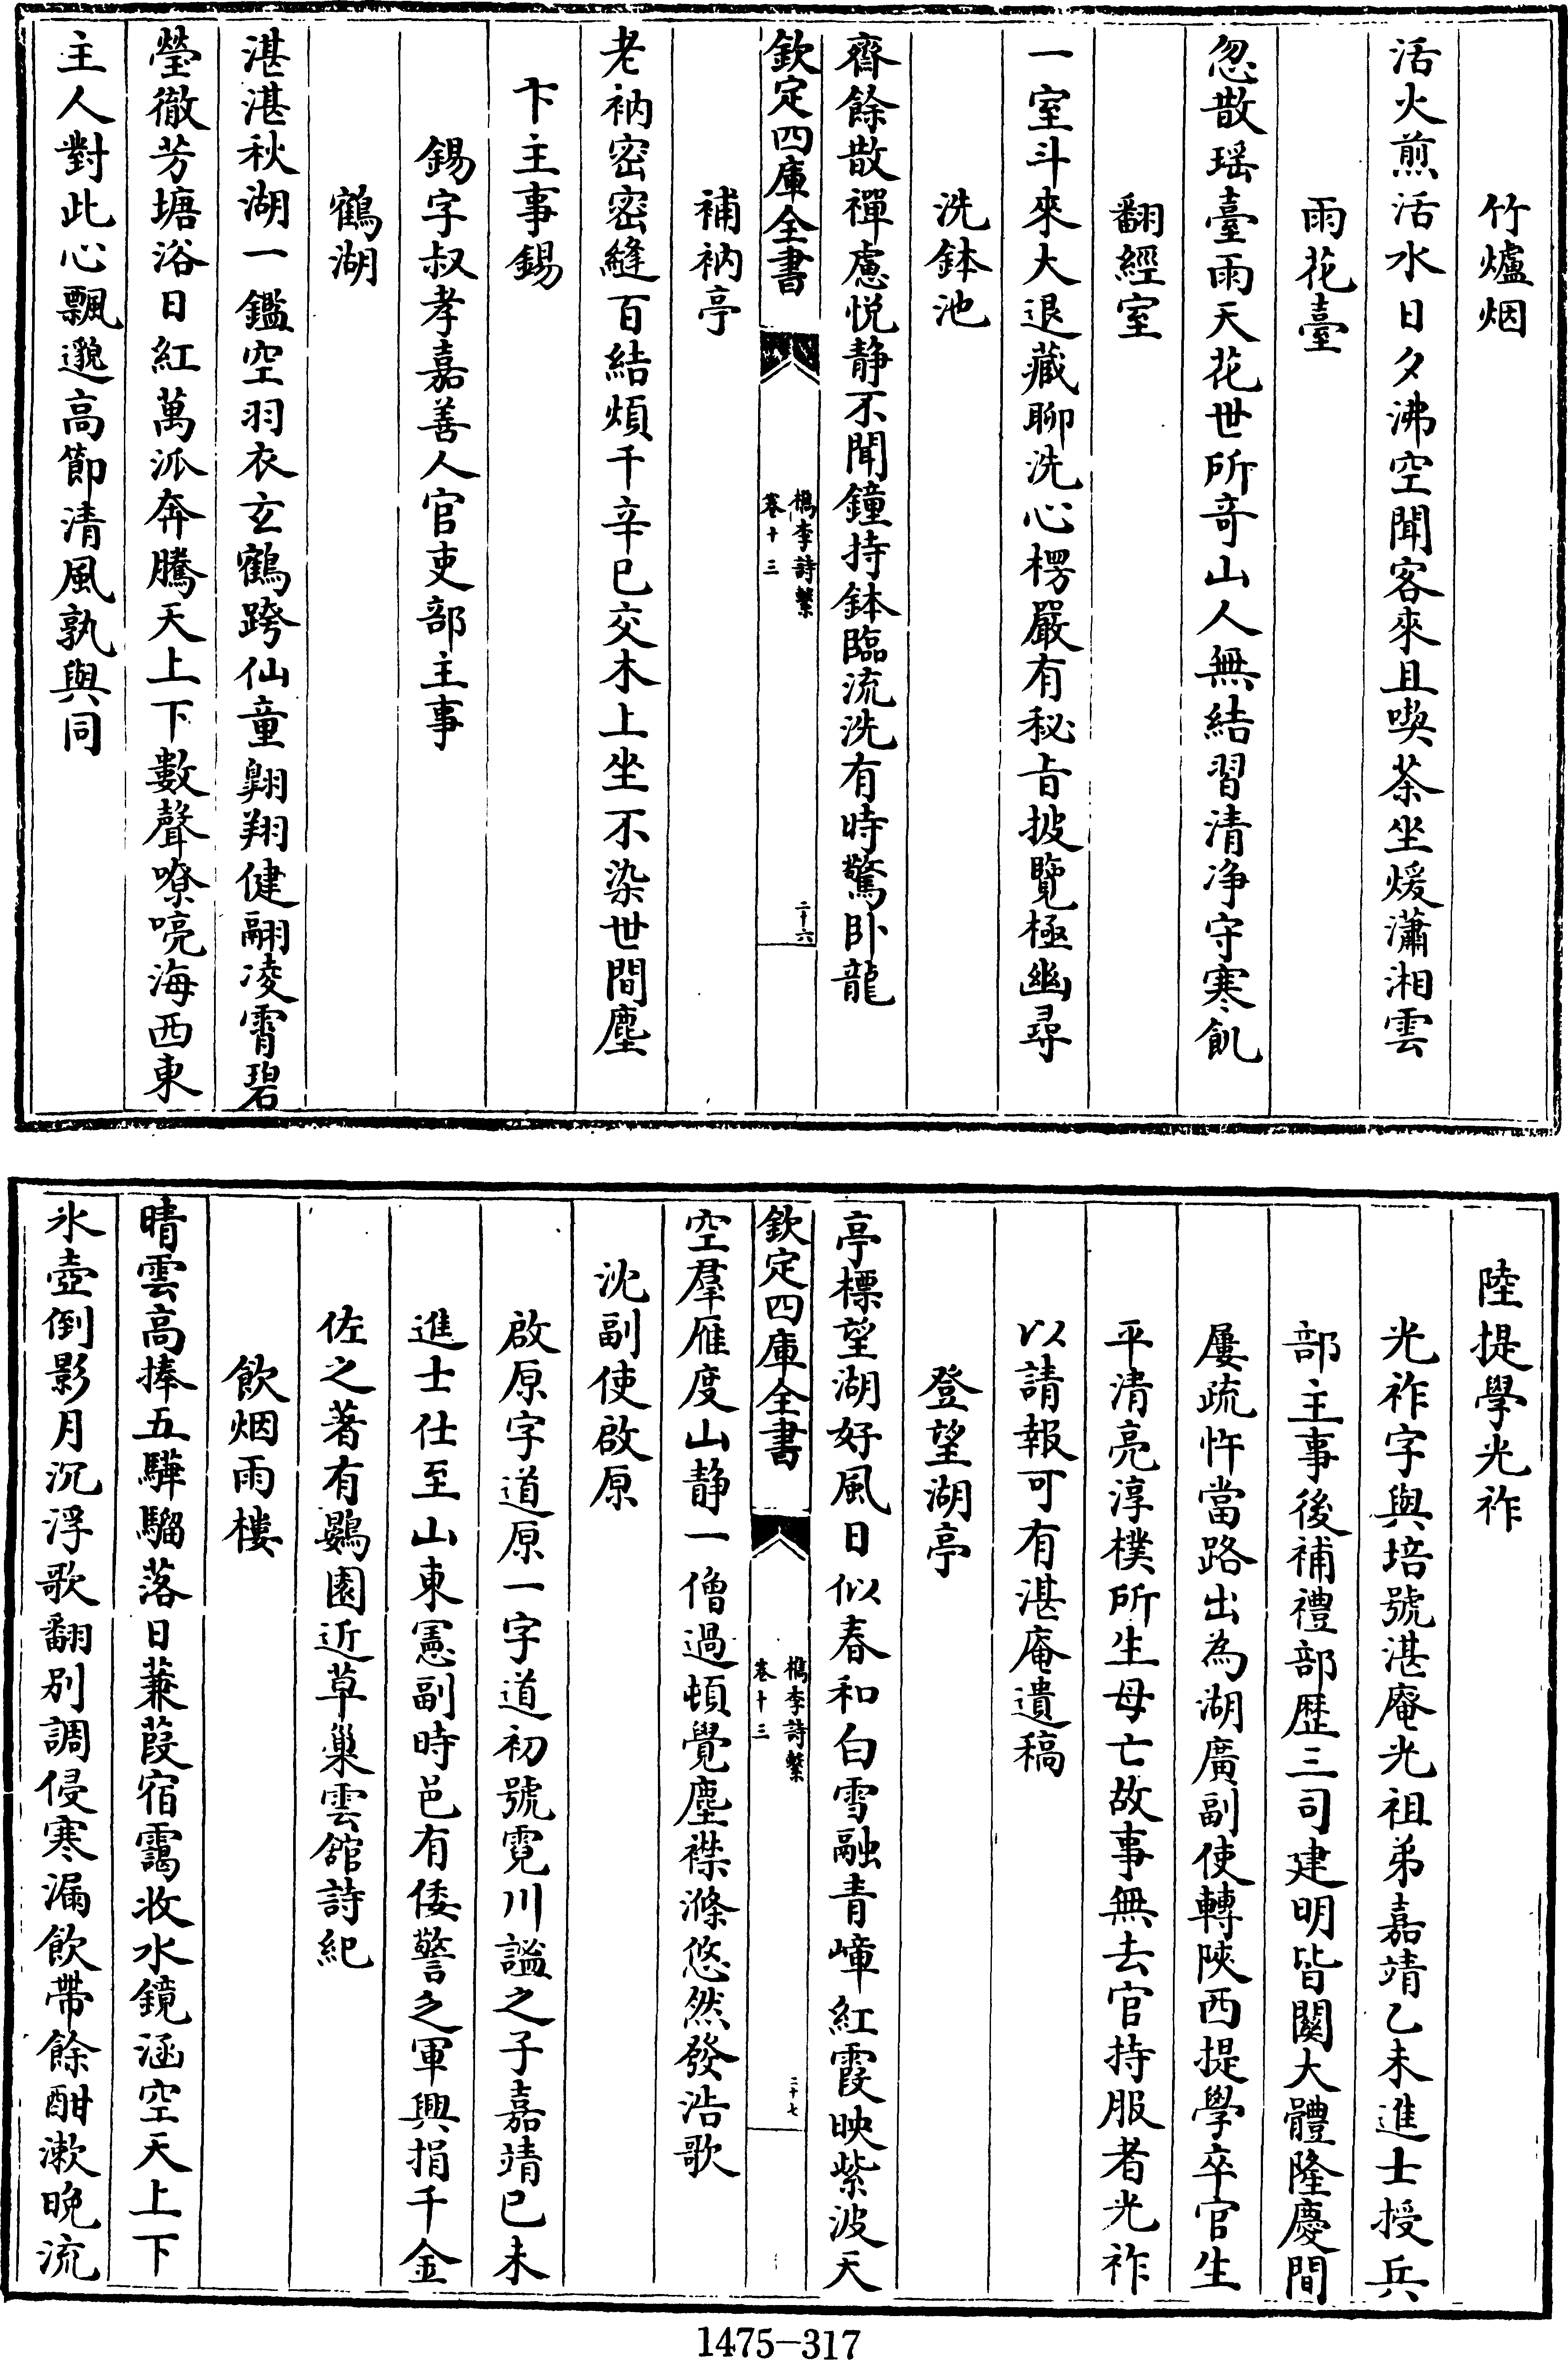 竹爐烟
活火煎活水日夕沸空聞客來且喫茶坐煖瀟湘雲
雨花臺
忽散瑶臺雨天花世所竒山人無結習清净守寒飢
翻經室
一室斗來大退藏聊洗心楞嚴有秘㫖披覽極幽尋
洗鉢池
齋餘散禪慮悦静不聞鐘持鉢臨流洗有時驚卧龍
欽定四庫全書
檇李詩繫
卷十三
二十六
補衲亭
老衲密密縫百結煩千辛巳交木上坐不染世間塵
卞主事錫
錫字叔孝嘉善人官吏部主事
鶴湖
湛湛秋湖一鑑空羽衣玄鶴跨仙童翺翔健翮凌霄碧
瑩徹芳塘浴日紅萬派奔騰天上下數聲嘹喨海西東
主人對此心飄邈高節清風孰與同
陸提學光祚
光祚字與培號湛庵光祖弟嘉靖乙未進士授兵
部主事後補禮部歴三司建明皆闗大體隆慶間
屢疏忤當路出為湖廣副使轉陜西提學卒官生
平清亮淳樸所生母亡故事無去官持服者光祚
以請報可有湛庵遺稿
登望湖亭
亭標望湖好風日似春和白雪融青嶂紅霞映紫波天
欽定四庫全書
檇李詩繫
卷十三
二十七
空羣雁度山静一僧過頓覺塵襟滌悠然發浩歌
沈副使啟原
啟原字道原一字道初號霓川謐之子嘉靖已未
進士仕至山東憲副時邑有倭警之軍興捐千金
佐之著有鷃園近草巢雲舘詩紀
飲烟雨樓
晴雲高捧五驊騮落日蒹葭宿靄收水鏡涵空天上下
氷壺倒影月沉浮歌翻別調侵寒漏飲帶餘酣漱晚流
1475-317